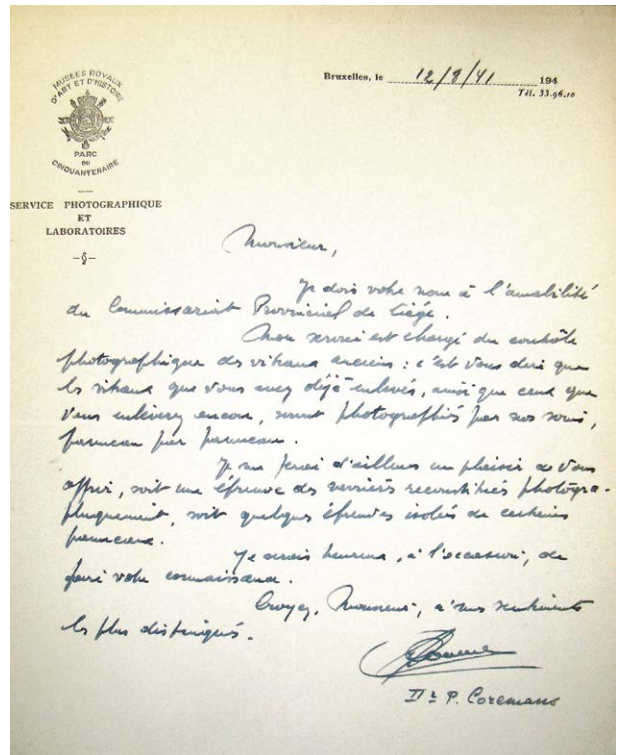 MUSÉES ROYAUX
D'ART ET D'HISTOIRE
PARC
DU
CINQUANTENAIRE
SERVICE PHOTOGRAPHIQUE
ET
LABORATOIRES
-§-
Bruxelles, le 12/8/41 194
Tél. 33.96.10
Monsieur,
Je dois votre nom à l'amabilité
du Commissariat Provincial de Liége.
Mon service est chargé du contrôle
photographique des vitraux anciens : c'est vous dire que
les vitraux que vous avez déjà enlevés, ainsi que ceux que
vous enlèverez encore, seront photographiés par nos soins,
panneau par panneau.
Je me ferai d'ailleurs un plaisir de vous
offrir, soit une épreuve des verrières reconstituées photogra-
phiquement, soit quelques épreuves isolées de certains
panneaux.
Je serais heureux, à l'occasion, de
faire votre connaissance.
Croyez, Monsieur, à mes sentiments
les plus distingués.
Dr P. Coremans